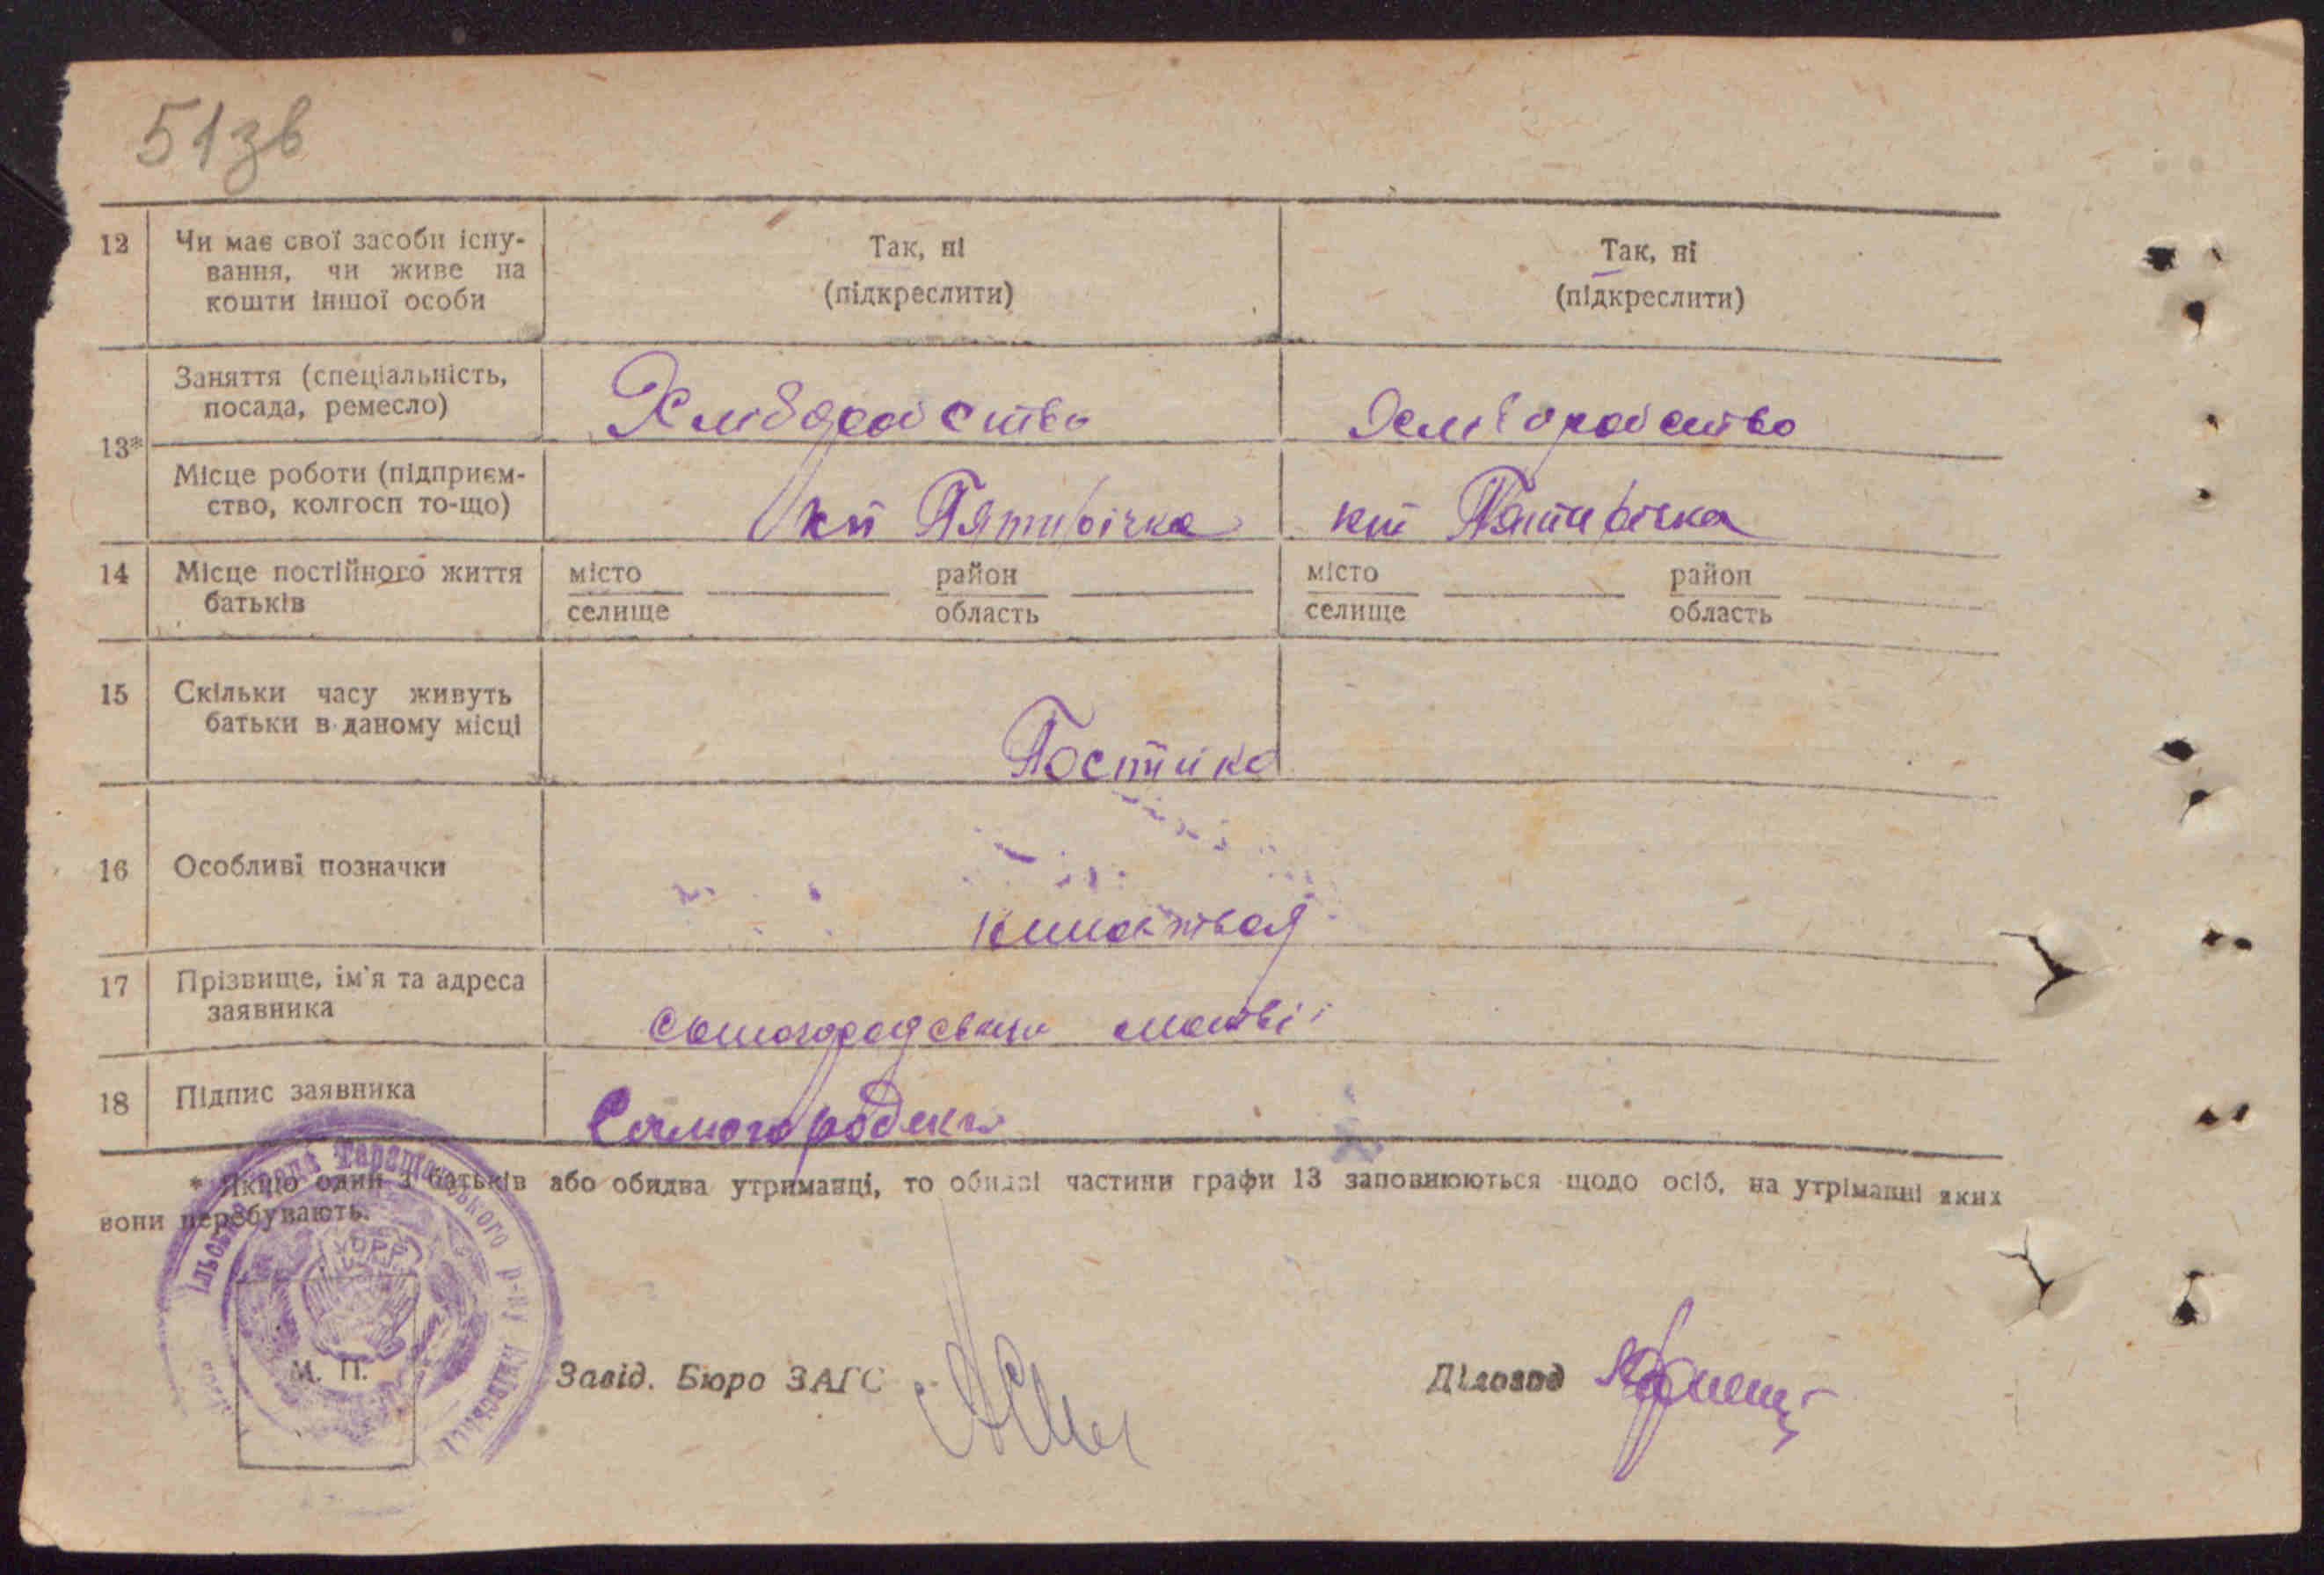 51зв
12 Чи має свої засоби існу-
вання, чи живе на
кошти іншої особи
Так, ні
(підкреслити)
Так, ні
(підкреслити)
13*
Заняття (спеціальність,
посада, ремесло)
Хліборобство
Хліборобство
Місце роботи (підприєм-
ство, колгосп то-що)
кп Пятирічка
кп Пятирічка
14 Місце постійного життя
батьків
місто район
селище область
місто район
селище область
15 Скільки часу живуть
батьки в даному місці
Постійно
16 Особливі позначки
17 Прізвище, ім'я та адреса
заявника
матвій
18 Підпис заявника
* Якщо один з батьків або обидва утриманці, то обидві частини графи 13 заповнюються щодо осіб, на утріманні яких
вони перебувають.
Таращанського р-ну Київської
УСРР
М. П.
Завід. Бюро ЗАГС
Діловод